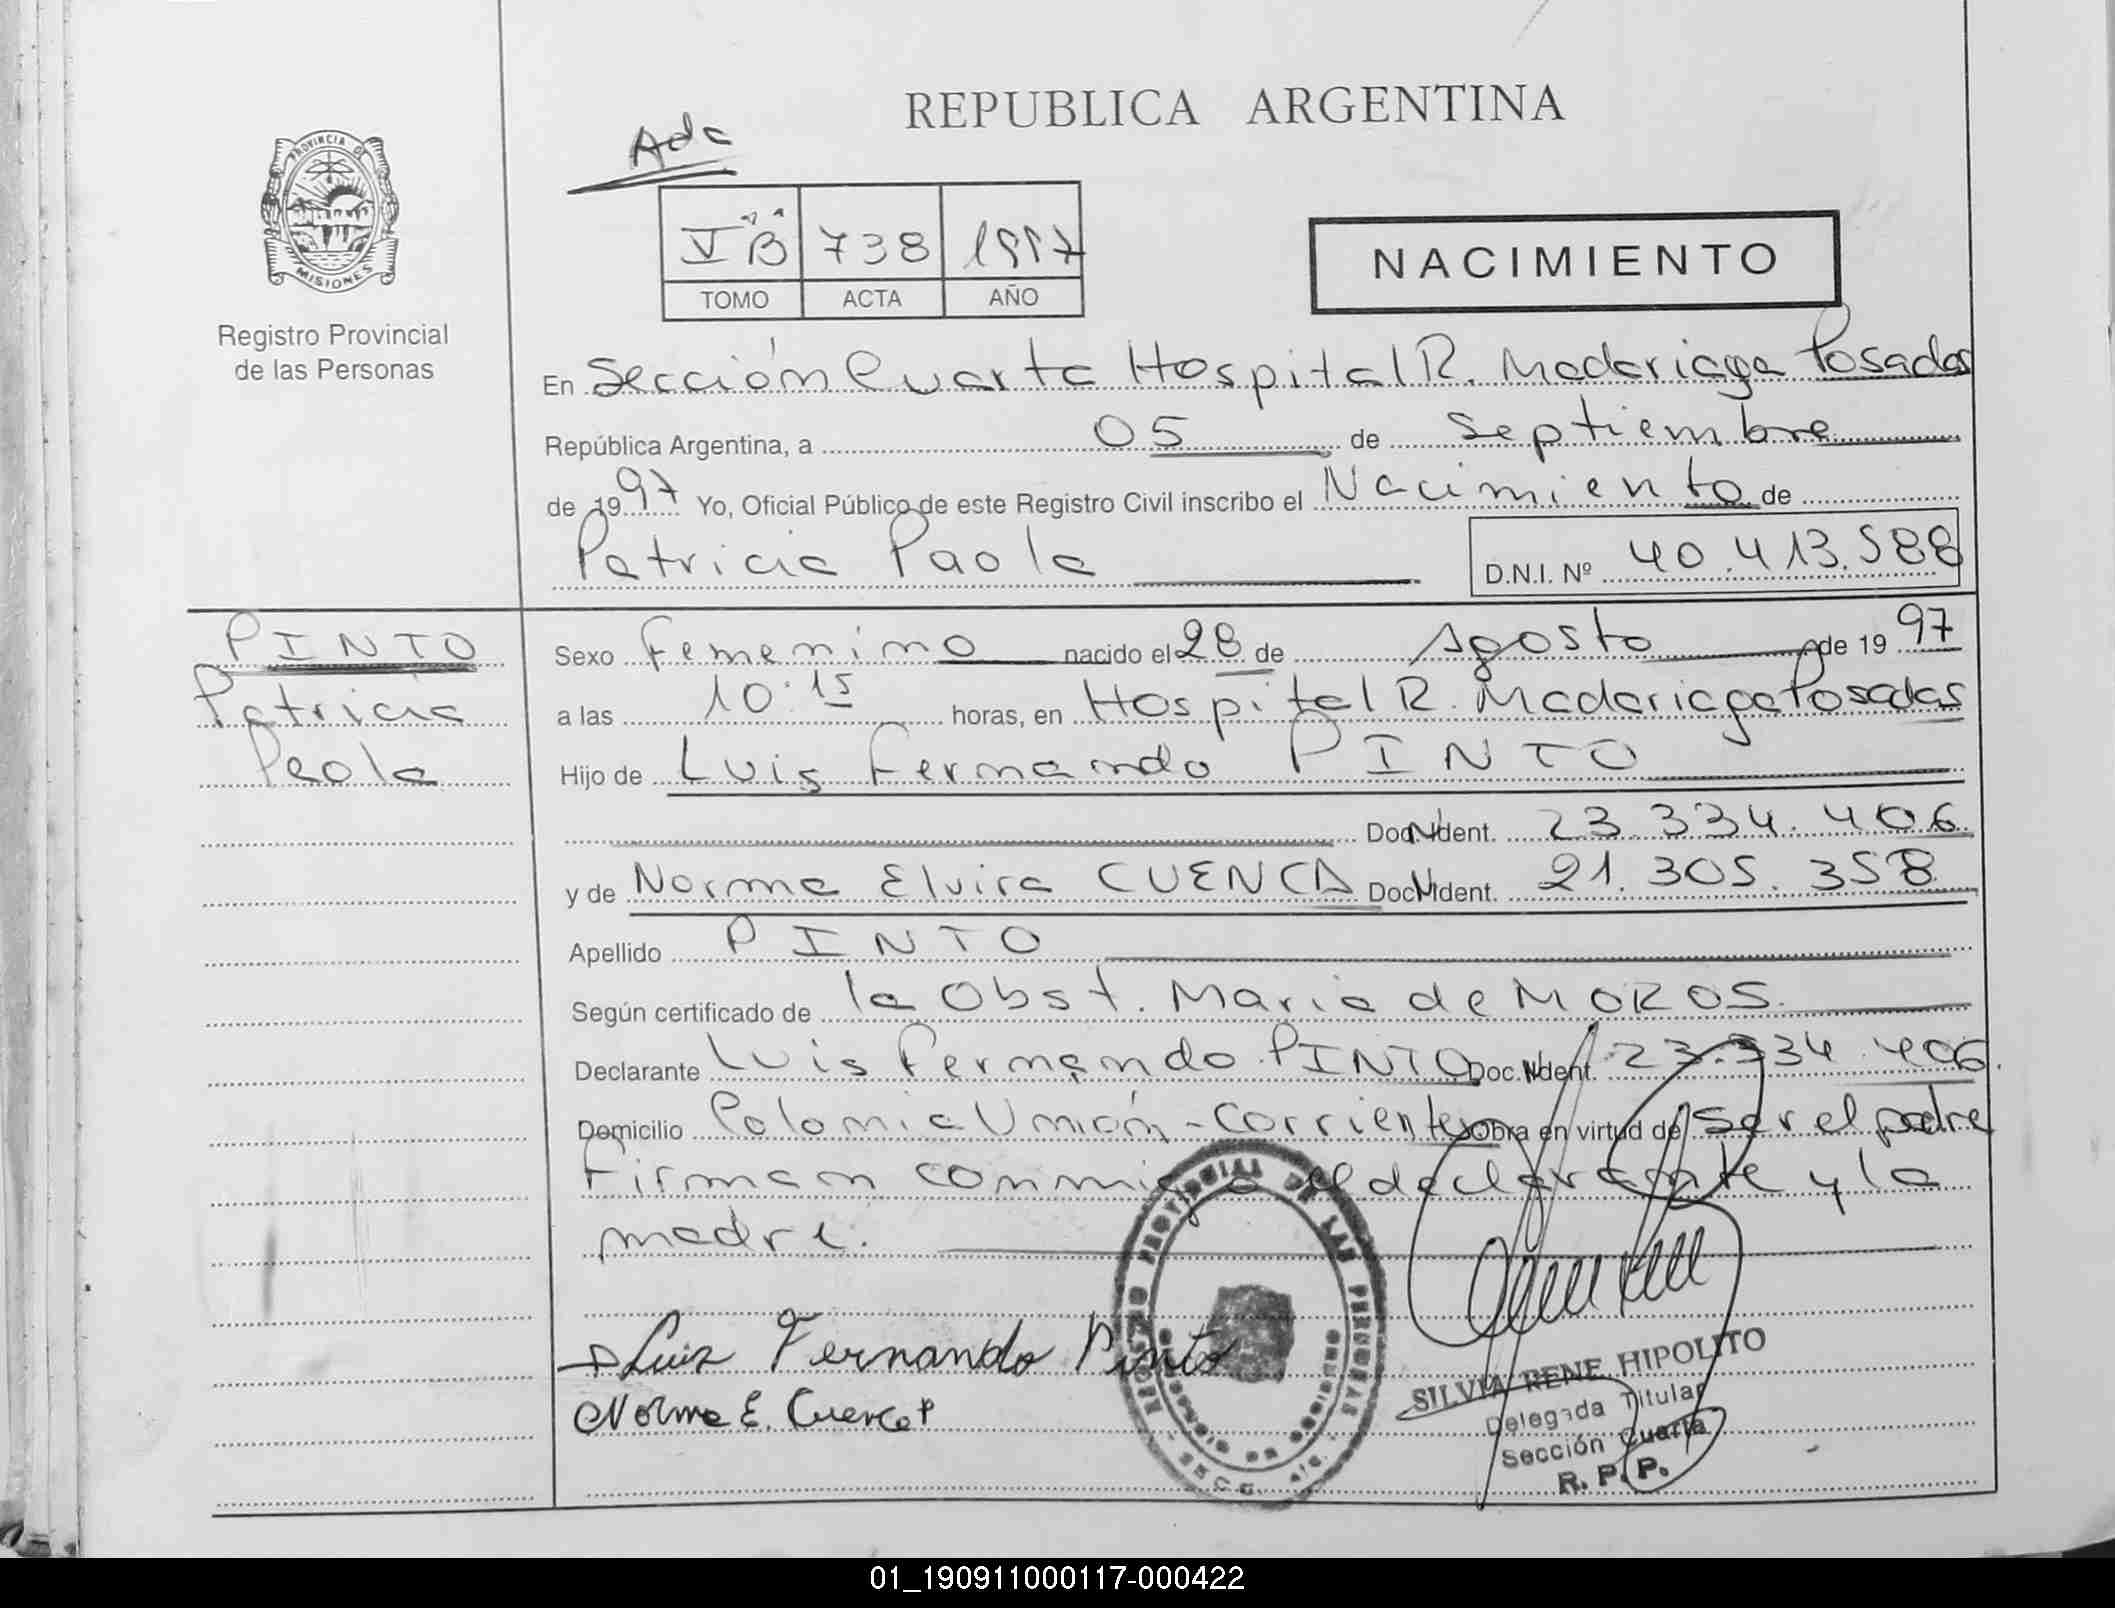 REPUBLICA ARGENTINA
Adc
PROVINCIA DE
MISIONES
Registro Provincial
de las Personas
V B 738 1997
TOMO ACTA AÑO
NACIMIENTO
En Sección Cuarta Hospital R. Madariaga Posadas
República Argentina, a 05 de Septiembre
de 1997 Yo, Oficial Público de este Registro Civil inscribo el Nacimiento de
Patricia Paola D.N.I. Nº 40.413.588
PINTO
Patricia
Paola
Sexo Femenino nacido el 28 de Agosto de 1997
a las 10:15 horas, en Hospital R. Madariaga Posadas
Hijo de Luis Fernando PINTO
Doc. Ident. 23.334.406
y de Norma Elvira CUENCA Doc. Ident. 21.305.358
Apellido PINTO
Según certificado de la Obst. Maria de MOROS.
Declarante Luis Fernando PINTO Doc. Ident. 23.334.406.
Domicilio Colonia Unión - Corrientes Obra en virtud de ser el padre
Firman conmigo el declarante y la
madre.
Luis Fernando Pinto
Norma E. Cuenca
REGISTRO PROVINCIAL DE LAS PERSONAS
SECC. 4ta.
SILVIA RENE HIPOLITO
Delegada Titular
Sección Cuarta
R. P. P.
01_190911000117-000422